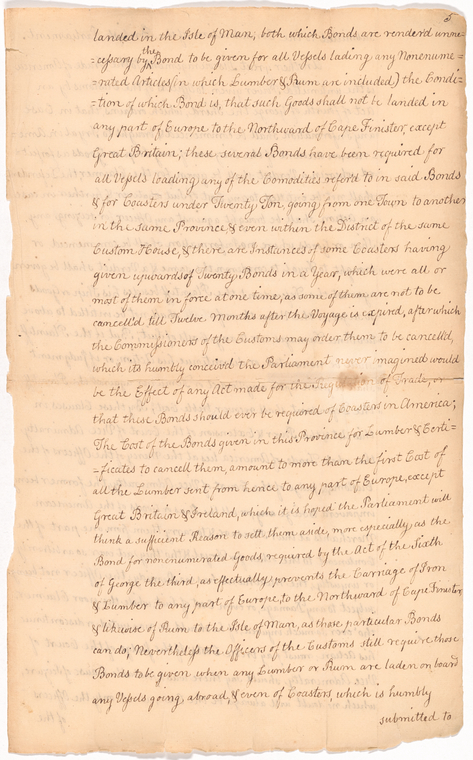 5
landed in the Isle of Man; both which Bonds are render'd unne=
=cessary by the Bond to be given for all Vessels lading any Nonenume=
=rated Articles (in which Lumber & Rum are included) the Condi=
=tion of which Bond is, that such Goods shall not be landed in
any part of Europe to the Northward of Cape Finister, except
Great Britain; these several Bonds have been required for
all Vessels loading any of the Comodities refer'd to in said Bonds
& for Coasters under Twenty Ton, going from one Town to another
in the same Province, & even within the District of the same
Custom House, & there are Instances of some Coasters having
given upwards of Twenty Bonds in a Year, which were all or
most of them in force at one time, as some of them are not to be
cancell'd till Twelve Months after the Voyage is expired, after which
the Commissioners of the Customs may order them to be cancell'd,
which its humbly conceiv'd the Parliament never imagined would
be the Effect of any Act made for the Regulation of Trade, or
that these Bonds should ever be required of Coasters in America;
The Cost of the Bonds given in this Province for Lumber & Certi=
=ficates to cancel them, amount to more than the first Cost of
all the Lumber sent from hence to any part of Europe, except
Great Britain & Ireland, which it is hoped the Parliament will
think a sufficient Reason to sett them aside, more especially as the
Bond for nonenumerated Goods, required by the Act of the Sixth
of George the third, as effectually prevents the Carriage of Iron
& Lumber to any part of Europe, to the Northward of Cape Finister,
& likewise of Rum to the Isle of Man, as those particular Bonds
can do; Nevertheless the Officers of the Customs still require those
Bonds to be given when any Lumber or Rum are laden on board
any Vessels going abroad, & even of Coasters, which is humbly
submitted to